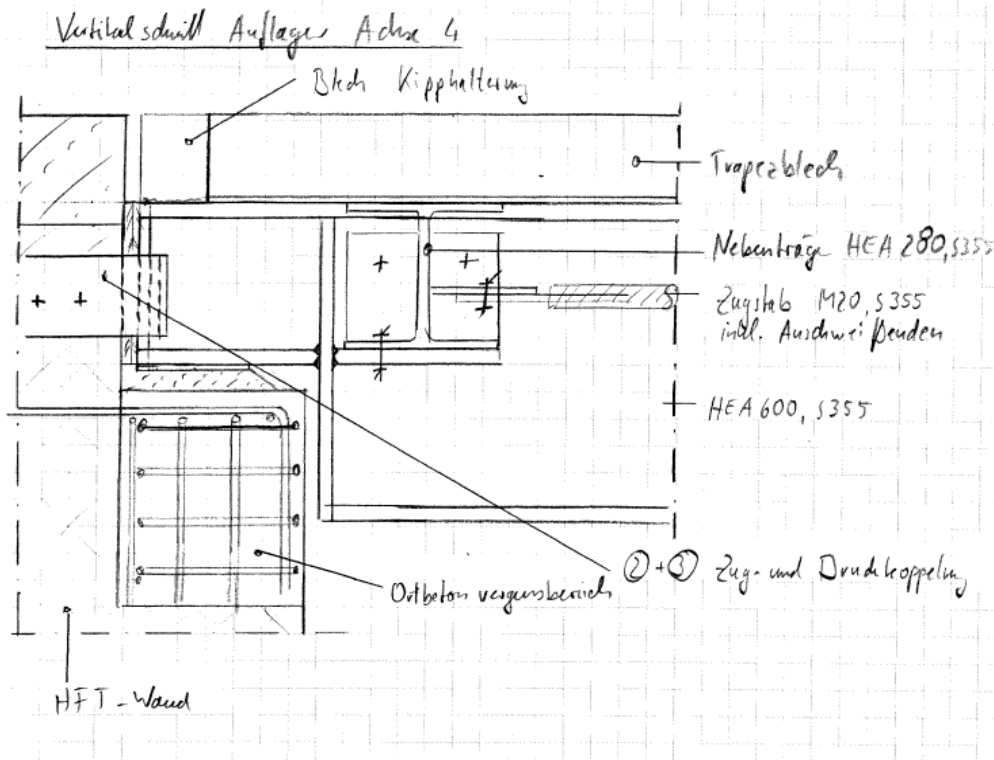 Vertikalschnitt Auflager Achse 4
Blech Kipphalterung
Trapezblech
Nebenträge HEA 280, S355
Zugstab M20, S355
inkl. Anschweißenden
HEA 600, S355
② + ③ Zug- und Druckkoppelung
Ortbetonvergussbereich
HFT-Wand